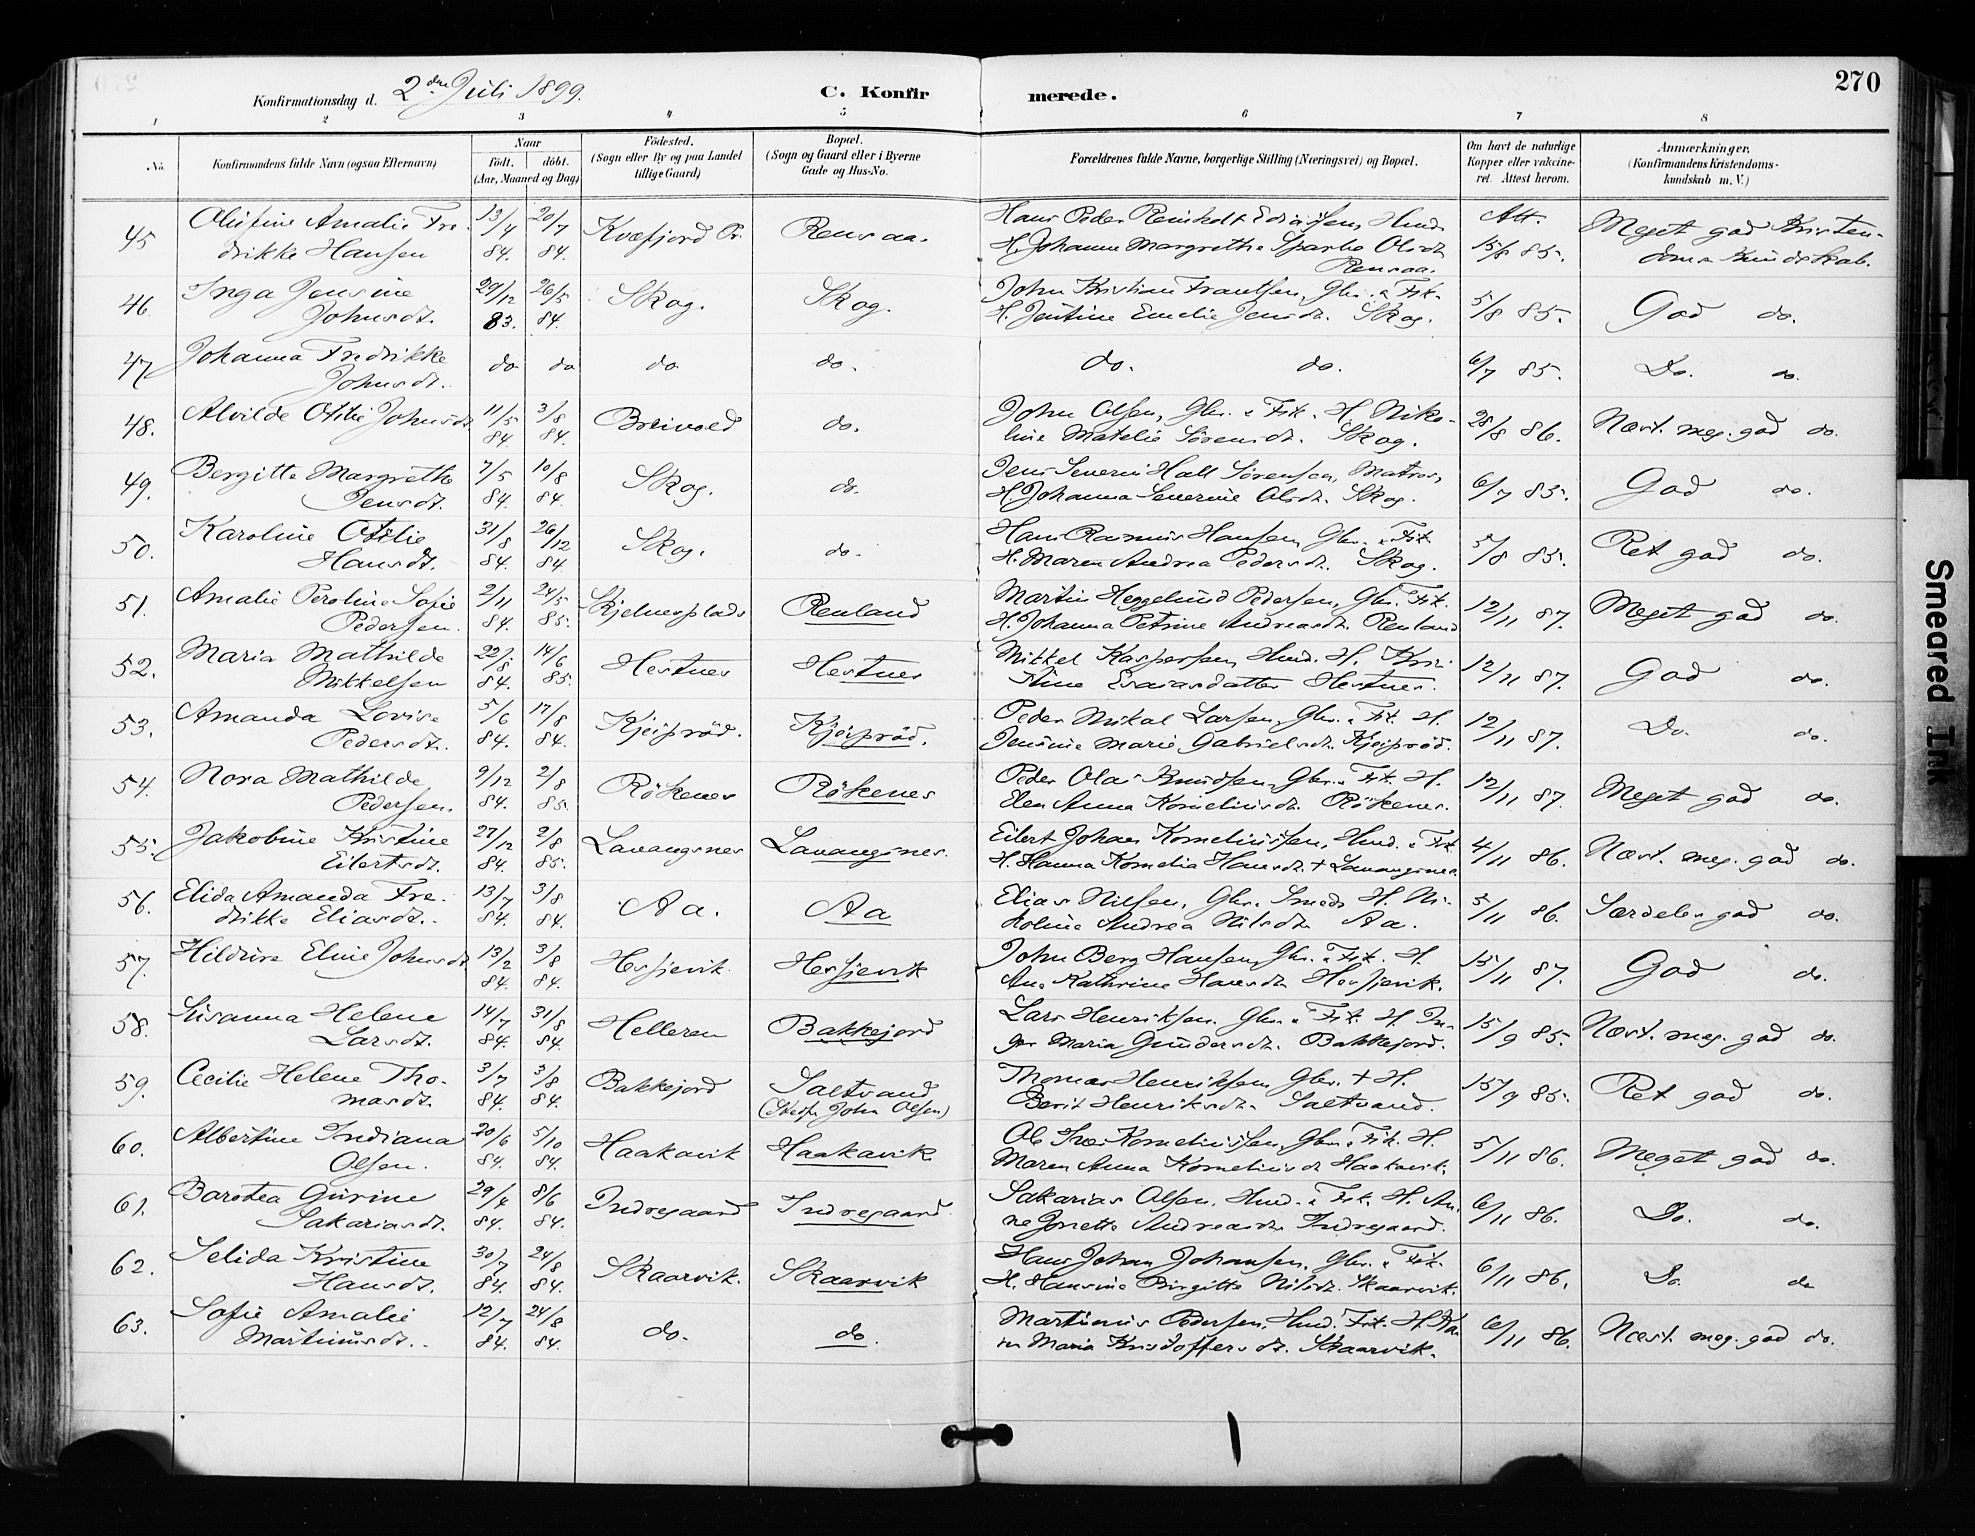 270
Konfirmationsdag d. 2den Juli 1899.
C. Konfirmerede.
1 2 3 4 5 6 7 8
No. Konfirmandens fulde Navn (ogsaa Efternavn) Naar født. døbt. (Aar, Maaned og Dag) Fødested. (Sogn eller By og paa Landet tillige Gaard) Bopæl. (Sogn og Gaard eller i Byerne Gade og Hus-No. Forældrenes fulde Navne, borgerlige Stilling (Næringsvei) og Bopæl. Om havt de naturlige Kopper eller vaccineret. Attest herom. Anmærkninger, (Konfirmandens Kristendomskundskab m. V.)
45 Olufine Amalie Fre- 13/4 20/7 Kvæfjord Pr. Rensaa. Hans Peder Reinholt Hmd. Att. Meget god Kristen-
drikke Hansen 84. 84. H. Johanna Margrethe Sparbo Olsdt. 15/8 85. doms Kundskab.
Rensaa.
46 Inga Jensine 29/12 26/5 Skog. Skog. John Kristian Frantsen, Gbr. & Fisk. 5/8 85. God do.
Johnsdt. 83. 84. H. Jentine Emelie Jensdt. Skog.
47 Johanna Fredrikke do do do do. do. do. 6/7 85. Do. do.
Johnsdt.
48. Alvilde Otilie Johnsdt 11/5 3/8 Breivold do. John Olsen, Gbr. & Fisk. H. Niko- 28/8 86. Næst. meg. god do.
84. 84. line Matelie Sørensdt. Skog.
49. Bergitte Margrethe 7/5 10/8 Skog. do. Jens Severin Hall Sørensen, Matros, 6/7 85. God do.
Jensdt. 84. 84. H. Johanna Severine Olsdt. Skog.
50. Karoline Otilie 31/8 26/12 Skog. do. Hans Rasmus Hansen, Gbr. & Fisk 5/8 85. Ret god do.
Hansdt. 84. 84 H. Maren Andrea Pedersdt. Skog.
51. Amalie Peroline Sofie 2/11 24/5 Skjelnesplads Renland Martin Heggelund Pedersen, Gbr. Fisk. 12/11 87. Meget god do.
Pedersen. 84. 85. H. Johanna Petrine Andreasdt. Renland
52. Maria Mathilde 22/8 14/6 Hestnes Hestnes Mikkel Kaspersen, Hmd. H. Kri- 12/11 87. God do.
Mikkelsen 84. 85. stine Esaiasdatter Hestnes.
53. Amanda Lovise 5/6 17/8 Kjeiprød. Kjeiprød. Peder Mikal Larsen, Gbr. & Fisk. H. 12/11 87. Do. do.
Pedersdt. 84. 84. Jensine Marie Gabrielsdt. Kjeiprød.
54. Nora Mathilde 9/12 2/8 Røkenes Røkenes Peder Olai Knudsen, Gbr. & Fisk. H. 12/11 87. Meget god do.
Pedersen. 84. 85. Elen Anna Korneliusdt. Røkenes.
55. Jakobine Kristine 27/12 2/8 Lavangsnes Lavangsnes. Eilert Johan Korneliussen, Hmd. & Fisk 4/11 86. Næst. meg. god do.
Eilertsdt. 84. 85. H. Hanna Kornelia Hansdt. + Lavangsnes.
56. Elida Amanda Fre- 13/7 3/8 Aa. Aa Elias Nilsen, Gbr. Smeds H. Ni- 5/11 86. Særdeles god do.
drikke Eliasdt. 84. 84. koline Andrea Nilsdt. Aa.
57. Hildine Eline Johnsdt 13/2 3/8 Hesjevik. Hesjevik John Berg Hansen, Gbr. & Fisk. H. 15/11 87. God do.
84. 84. Ane Kathrine Hansdt. Hesjevik.
58. Susanna Helene 14/7 31/8 Helleren Bakkejord Lars Henriksen. Gbr. & Fisk. H. In- 15/9 85. Næst. meg. god do.
Larsdt. 84. 84. ger Maria Gundersdt. Bakkejord.
59. Cecilie Helene Tho- 3/7 3/8 Bakkejord Saltvand Thomas Henriksen, Gbr. + H. 15/9 85. Ret god do.
masdt. 84. 84. (Stedf. John Olsen) Berit Henriksdt. Saltvand.
60. Albertine Indiana 20/6 5/10 Haakavik Haakavik. Ole Korneliussen, Gbr. & Fisk. H. 5/11 86. Meget god do.
Olsen. 84. 84. Maren Anna Korneliusdt Haakavik.
61. Barotea Gurine 29/4 8/6 Indregaard Indregaard Sakarias Olsen, Hmd. & Fisk. H. An- 6/11 86. Do. do.
Sakariasdt. 84. 84. ne Jonette Andreasdt. Indregaard.
62. Selida Kristine 30/7 24/8 Skaarvik. Skaarvik Hans Johan Johansen, Gbr. & Fisk. 6/11 86. Do. do
Hansdt. 84. 84. H. Hansine Birgitte Nilsdt. Skaarvik.
63. Sofie Amalie 12/7 24/8 do. do. Martinus Pedersen, Hmd. Fisk. H. Ka- 6/11 86. Næst. meg. god do.
Martinusdt. 84. 84. ren Maria Kristoffersdt. Skaarvik.
Smeared Ink